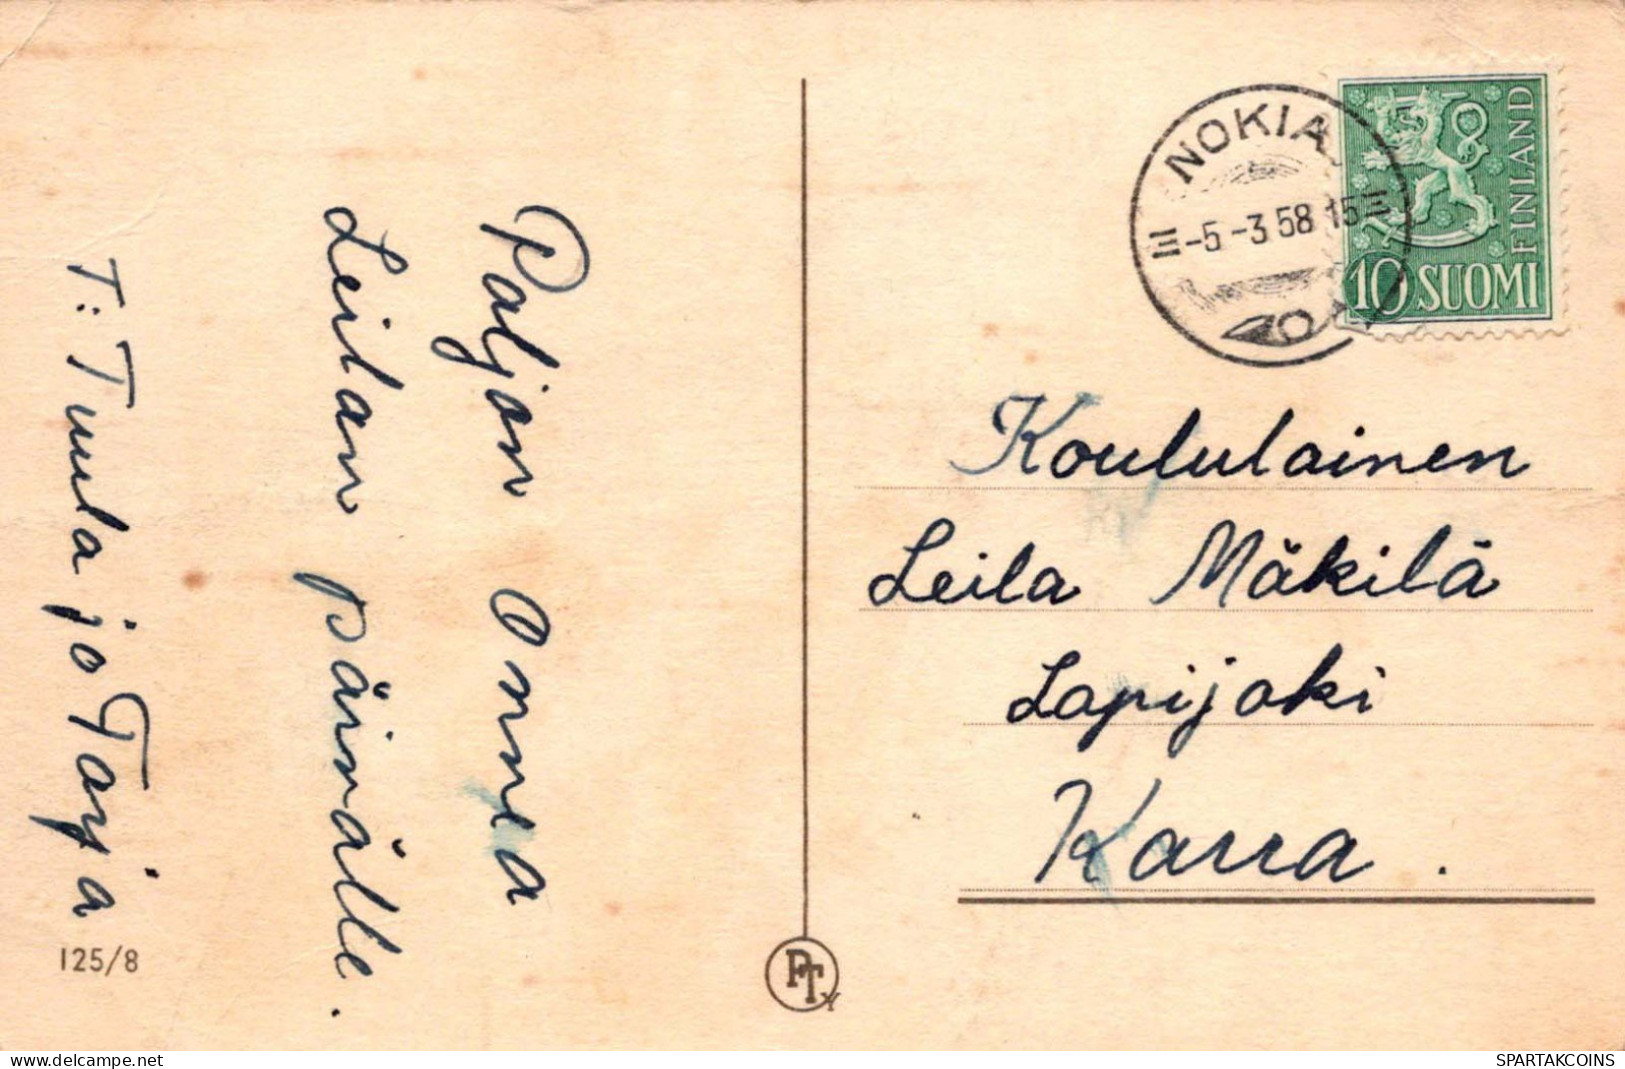 Paljon Onnea
Leilan päivälle.
T: Tuula ja Tarja
125/8
PTY
NOKIA
-5-3 58 15
FINLAND
10 SUOMI
Koululainen
Leila Mäkilä
Lapijoki
Karra.
www.delcampe.net
SPARTAKCOINS